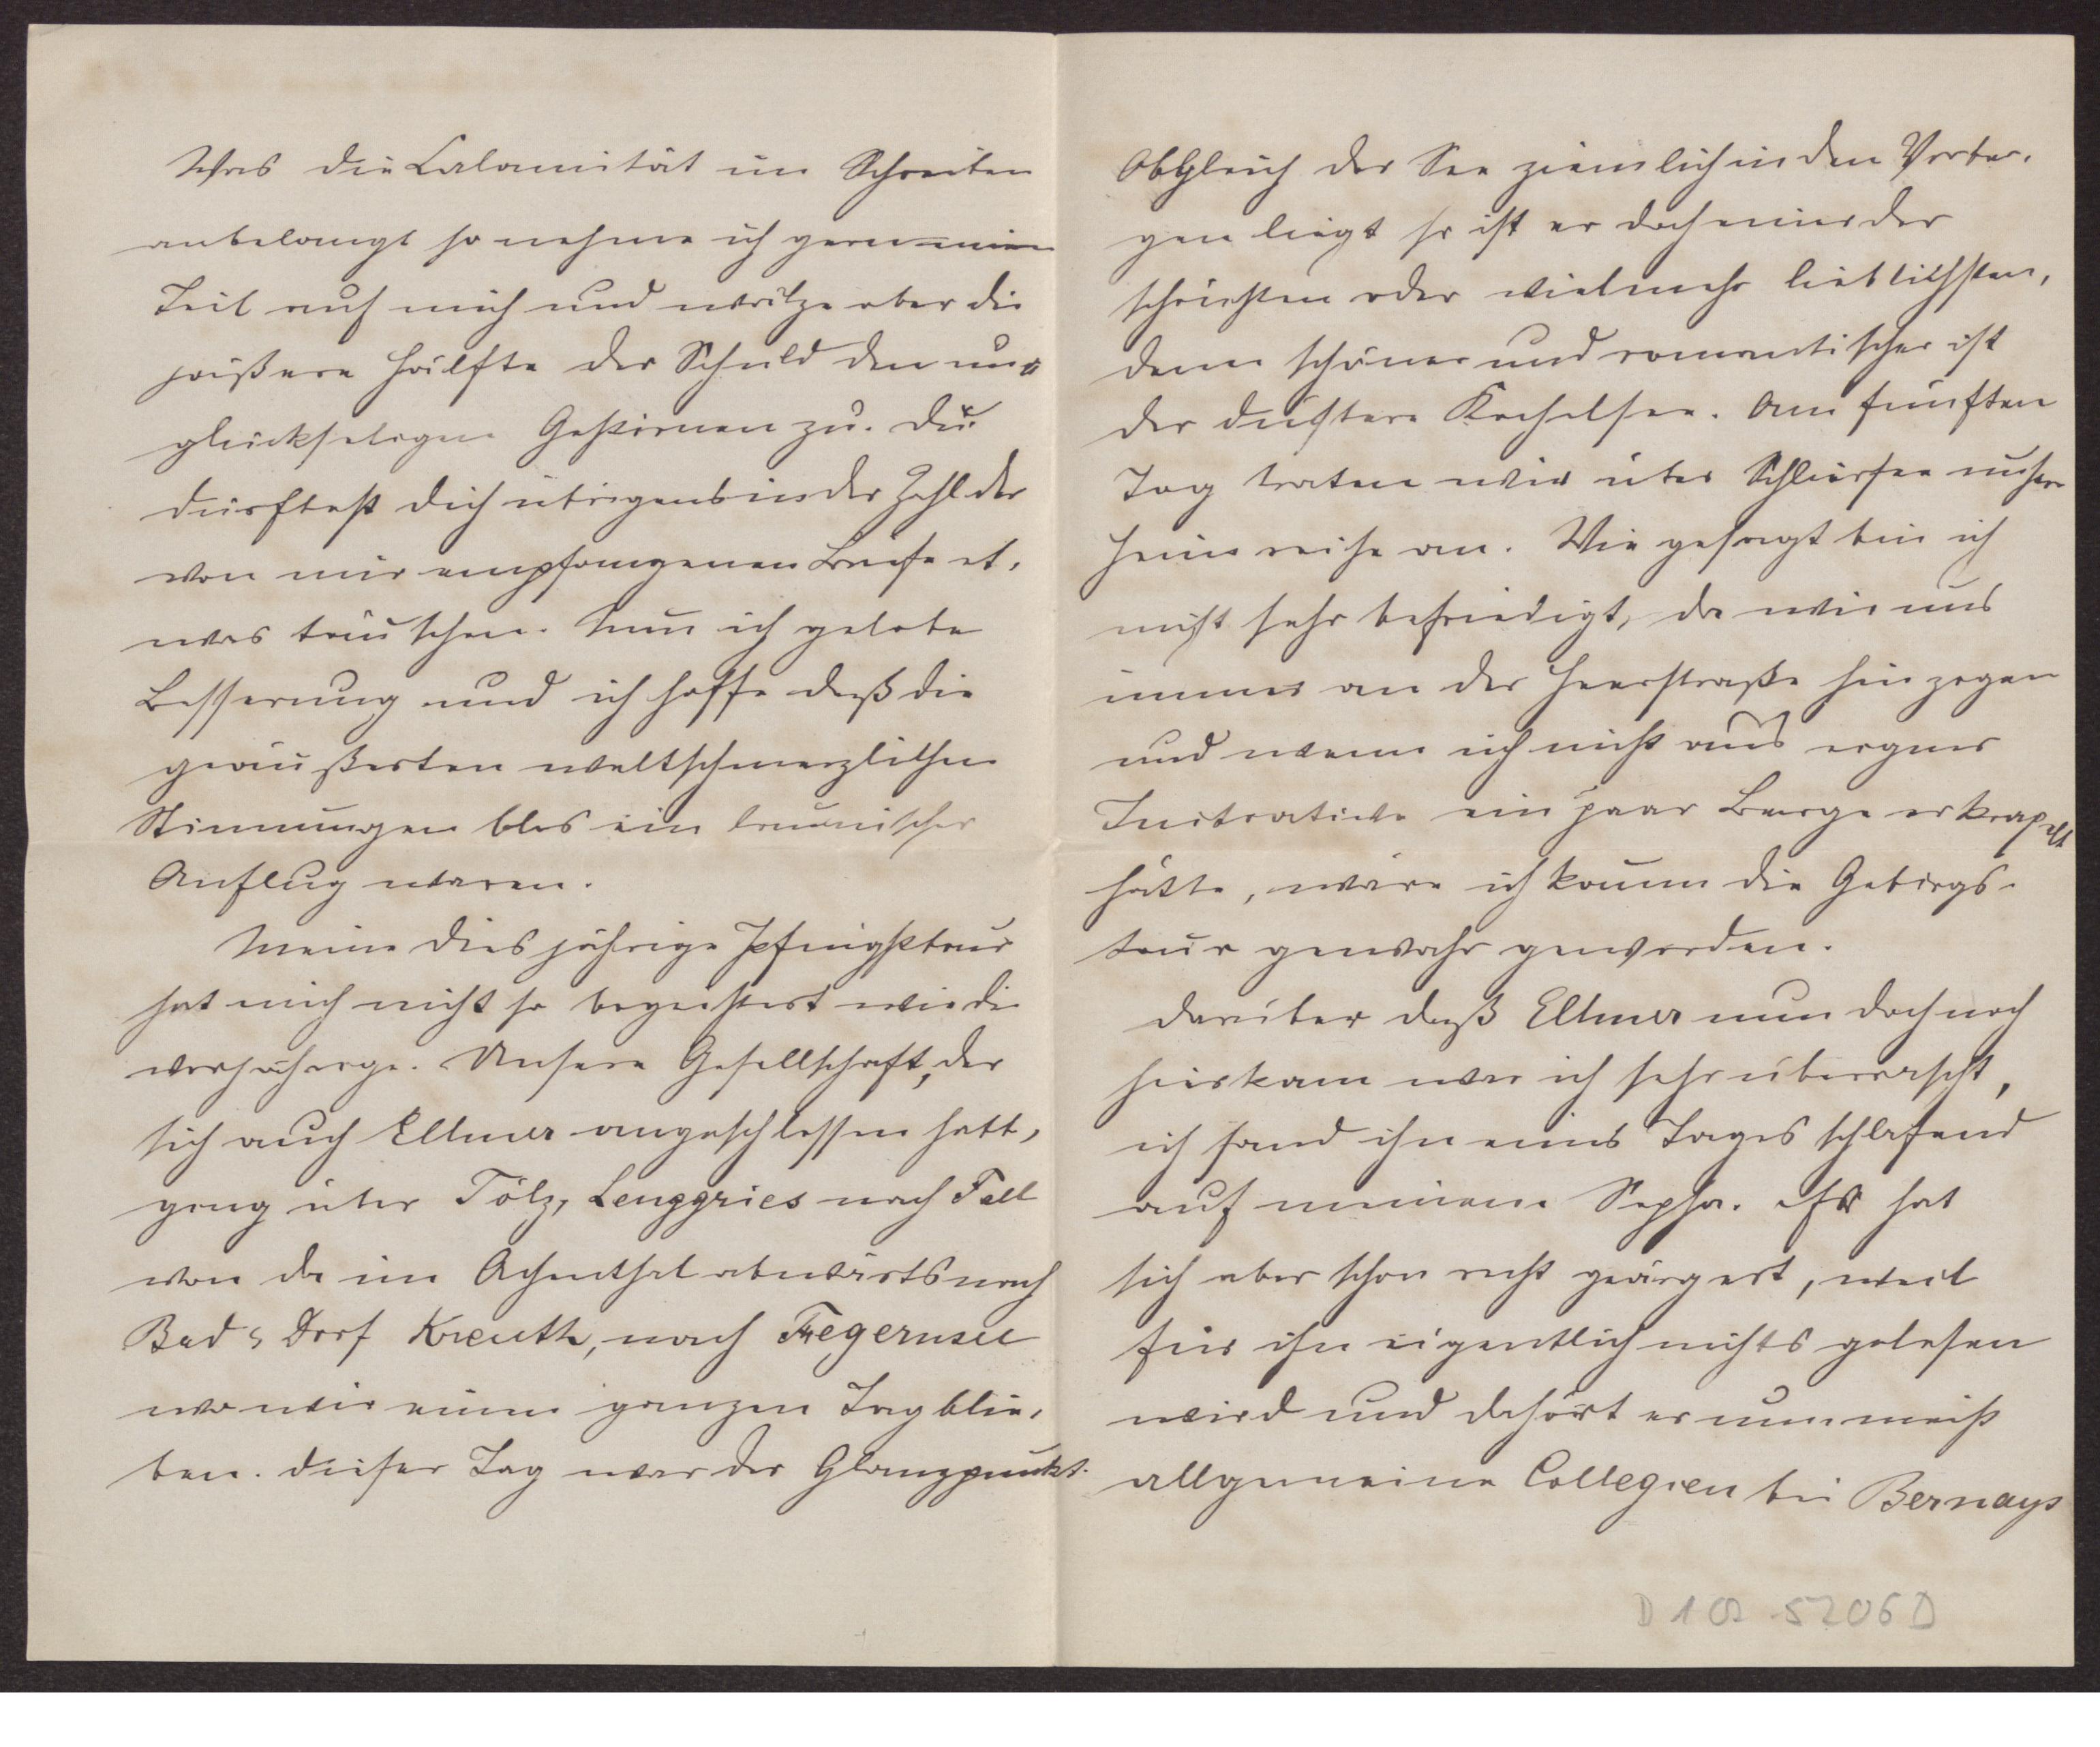 Was die Calamität im Schreiben
anbelangt so nehme ich gern meinen
Teil auf mich und wälze aber die
größere Hälfte der Schuld den un-
glückseligen Gestirnen zu. Du
dürftest dich übrigens in der Zahl der
von mir empfangenen Briefe et-
was täuschen. Nun ich gelobe
Besserung und ich hoffe daß die
geäußerten weltschmerzlichen
Stimmungen blos ein launischer
Anflug waren.
Meine diesjährige Pfingsttour
hat mich nicht so begeistert wie die
vorjährige. Unsere Gesellschaft, der
sich auch Ellmer angeschlossen hatt,
ging über Tölz, Lenggries nach Fall
von da im Achenthal abwärts nach
Bad & Dorf Kreuth, nach Tegernsee
wo wir einen ganzen Tag blie-
ben. Dieser Tag war der Glanzpunkt.
Obgleich der See ziemlich in den Vorber-
gen liegt so ist er doch einer der
schönsten oder vielmehr lieblichsten,
denn schöner und romantischer ist
der düstere Kochelsee. Am fünften
Tag traten wir über Schliersee unsere
Heimreise an. Wie gesagt bin ich
nicht sehr befriedigt, da wir uns
immer an der Heerstraße hinzogen
und wenn ich nicht aus eigner
Initiative ein paar Berge erkrapelt
hätte, wäre ich kaum die Gebirgs-
tour gewahr geworden.
Darüber daß Ellmer nun doch noch
hierkam war ich sehr überrascht,
ich fand ihn eines Tages schlafend
auf meinem Sopha. Er hat
sich aber schon recht geärgert, weil
für ihn eigentlich nichts gelesen
wird und da hört er nun meist
allgemeine Collegien bei Bernays
D 1 5206 D